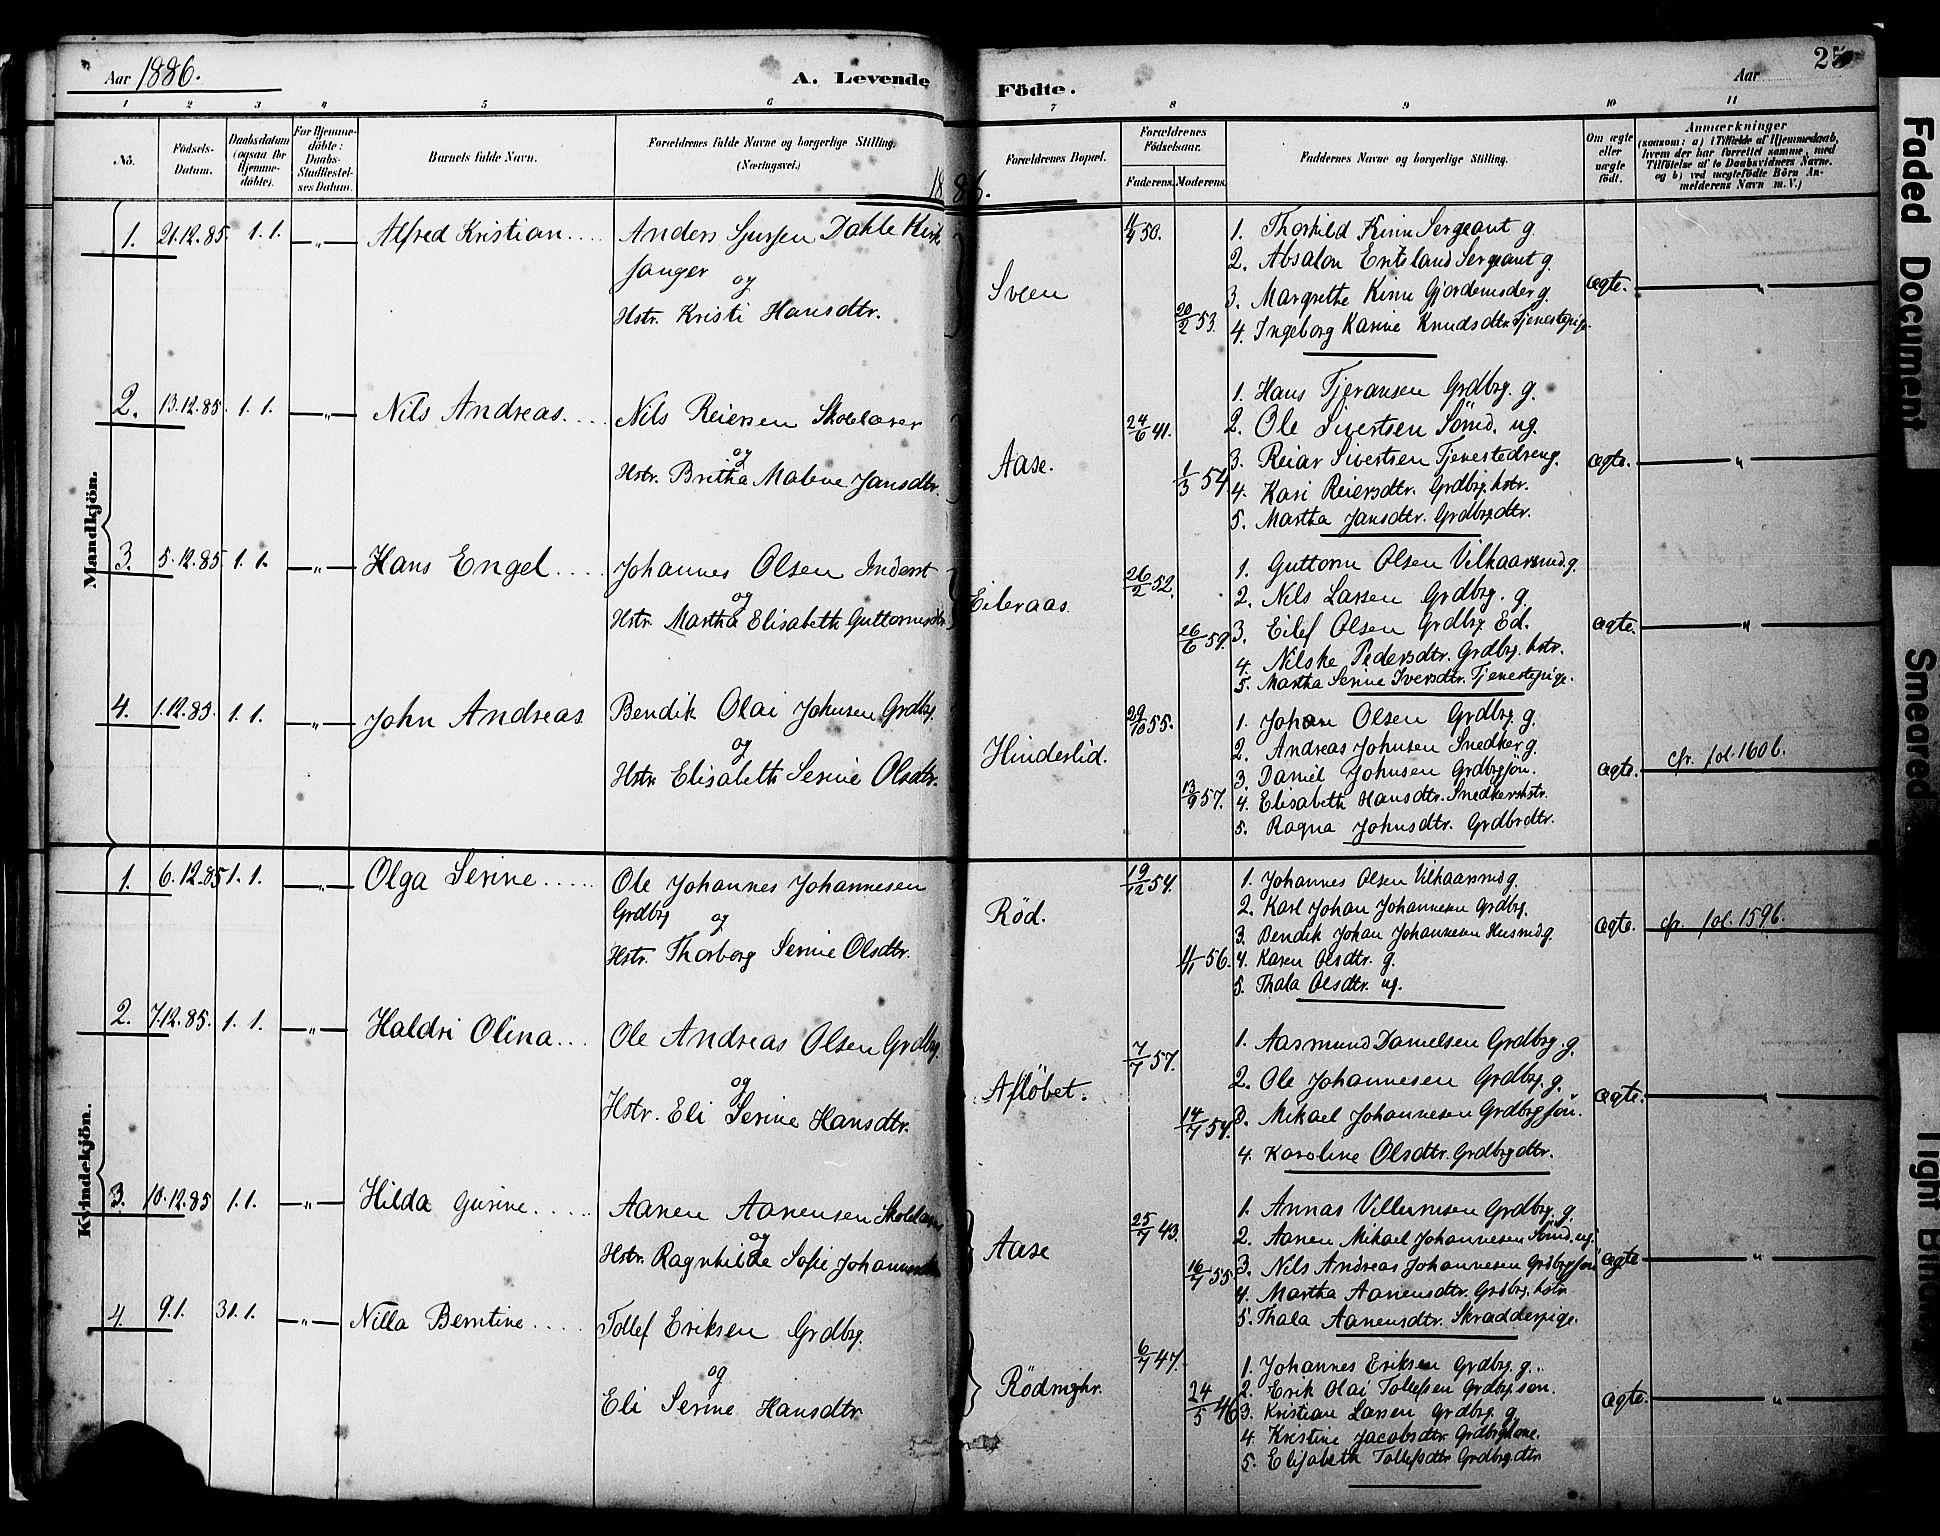 Aar 1886.
A. Levende
Födte.
Aar
25
1 2 3 4 5 6 7 8 9 10 11
No.
Födsels-
Datum.
Daabsdatum
(ogsaa for
Hjemme-
döbte).
For Hjemme-
döbte:
Daabs-
Stadfæstel-
ses Datum.
Barnets fulde Navn.
Forældrenes fulde Navne og borgerlige Stilling.
(Næringsvei.)
Forældrenes Bopæl.
Forældrenes
Födselsaar.
Faderens. Moderens.
Faddernes Navne og borgerlige Stilling.
Om ægte
eller
uægte
födt.
Anmærkninger
(saasom: a) i Tilfælde af Hjemmedaab,
hvem der har forrettet samme, med
Tilföielse af to Daabsvidners Navne.
og b) ved uægtefödte Börn An-
melderens Navn m. V.)
1886.
Mandkjön.
1. 21.12.85. 1.1. —„— Alfred Kristian....
Anders Sjursen Dahle Kirk
sanger
og
Hstr. Kristi Hansdtr.
Sveen
11/9 50.
20/2 53.
1. Thorkild Kinn Sergeant g.
2. Absalon Eritsland Sergeant g.
3. Margrethe Kinn Gjordemoder g.
4. Ingeborg Karine Knudsdtr. Tjenestepige.
ægte. —„—
2. 13.12.85. 1.1. —„— Nils Andreas....
Nils Reiersen Skolelærer
og
Hstr. Britha Malene Jansdtr.
Aase.
24/6 41.
1/3 54
1. Hans Tjeransen Grdbrg. g.
2. Ole Sivertsen Sömd. ug.
3. Reiar Sivertsen Tjenestedreng.
4. Kari Reiersdtr. Grdbrg. hstr.
5. Martha Jansdtr. Grdbrgdtr.
ægte. —„—
3. 5.12.85 1.1. —„— Hans Engel....
Johannes Olsen Inderst
og
Hstr. Martha Elisabeth Guttormsdtr.
Eileraas.
26/2 52.
26/6 59.
1. Guttorm Olsen Vilkaarsmd. g.
2. Nils Larsen Grdbrg. g.
3. Eilef Olsen Grdbrg. Ed.
4. Nilske Pedersdtr. Grdbrg. hstr.
5. Martha Serine Iversdtr. Tjenestepige.
ægte. —„—
4. 1.12.85. 1.1. —„— John Andreas
Bendik Olai Johnsen Grdbrg.
og
Hstr. Elisabeth Serine Olsdtr.
Hinderlid.
29/10 55.
13/9 57.
1. Johan Olsen Grdbrg g.
2. Andreas Johnsen Snedker g.
3. Daniel Johnsen Grdbrgsön.
4. Elisabeth Hansdtr. Snedkershstr.
5. Ragna Johnsdtr. Grdbrdtr.
ægte. cfr. fol. 160 b.
Kvindekjön.
1. 6.12.85 1.1. —„— Olga Serine.....
Ole Johannes Johannesen
Grdbrg
og
Hstr. Thorborg Serine Olsdtr.
Röd.
19/12 54.
11/1 56.
1. Johannes Olsen Vilkaarsmd g.
2. Karl Johan Johannesen Grdbrg.
3. Bendik Johan Johannesen Husmd g.
4. Karen Olsdtr. g.
5. Thala Olsdtr. ug.
ægte. cfr. fol. 159 b.
2. 7.12.85. 1.1. —„— Haldri Olina...
Ole Andreas Olsen Grdbrg.
og
Hstr. Eli Serine Hansdtr.
Aflöbet.
7/7 57.
14/7 54.
1. Aasmund Danielsen Grdbrg. g.
2. Ole Johannesen Grdbrg. g.
3. Mikael Johannesen Grdbrgsön.
4. Karoline Olsdtr. Grdbrgdtr.
ægte. —„—
3. 10.12.85 1.1. —„— Hilda Gurine.....
Aanen Aanensen Skolelærer
og
Hstr. Ragnhilde Sofie Johannesdtr
Aase
25/7 43.
16/7 55.
1. Annas Villumsen Grdbrg. g.
2. Aanen Mikael Johannesen Sömd. ug.
3. Nils Andreas Johannesen Grdbrgsön
4. Martha Aanensdtr. Grdbrg. hstr.
5. Thala Aanensdtr. Skrædderpige.
ægte —„—
4. 9.1. 31.1. —„— Nilla Berntine....
Tollef Eriksen Grdbrg.
og
Eli Serine Hansdtr
Rödmghr.
6/7 47.
24/5 46
1. Johannes Eriksen Grdbrg. g.
2. Erik Olai Tollefsen Grdbrg. sön.
3. Kristian Larsen Grdbrg. g
4. Kristine Jacobsdtr. Grdbrgkone.
5. Elisabeth Tollefsdtr Grdbrg. dtr
ægte. —„—
Faded Document
Smeared
Tight Binding